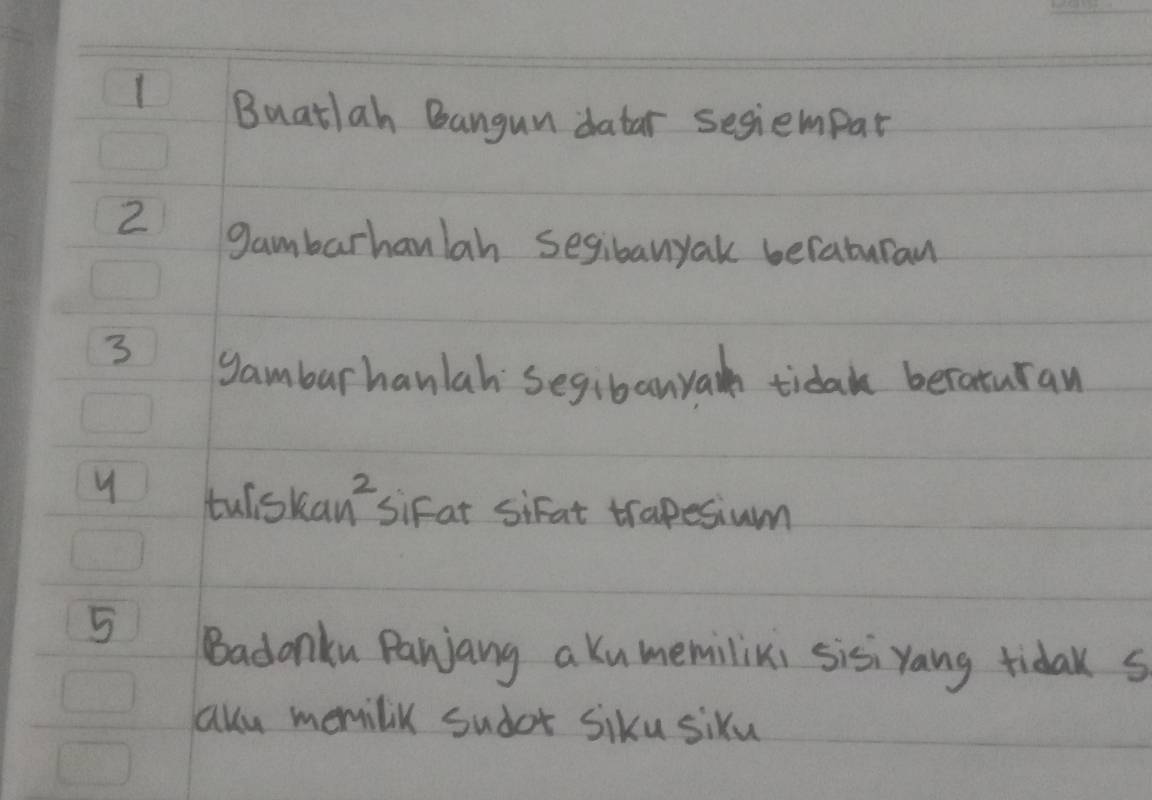 1 Buatlah Bangun datar segiempat
2 gambarhanlah segibanyak beraturan
3 gambarhanlah segibanyak tidak beraturan
4 tuliskan² sifat sifat trapesium
5 Badanku Panjang aku memiliki sisi yang tidak s
aku memilik sudot siku siku